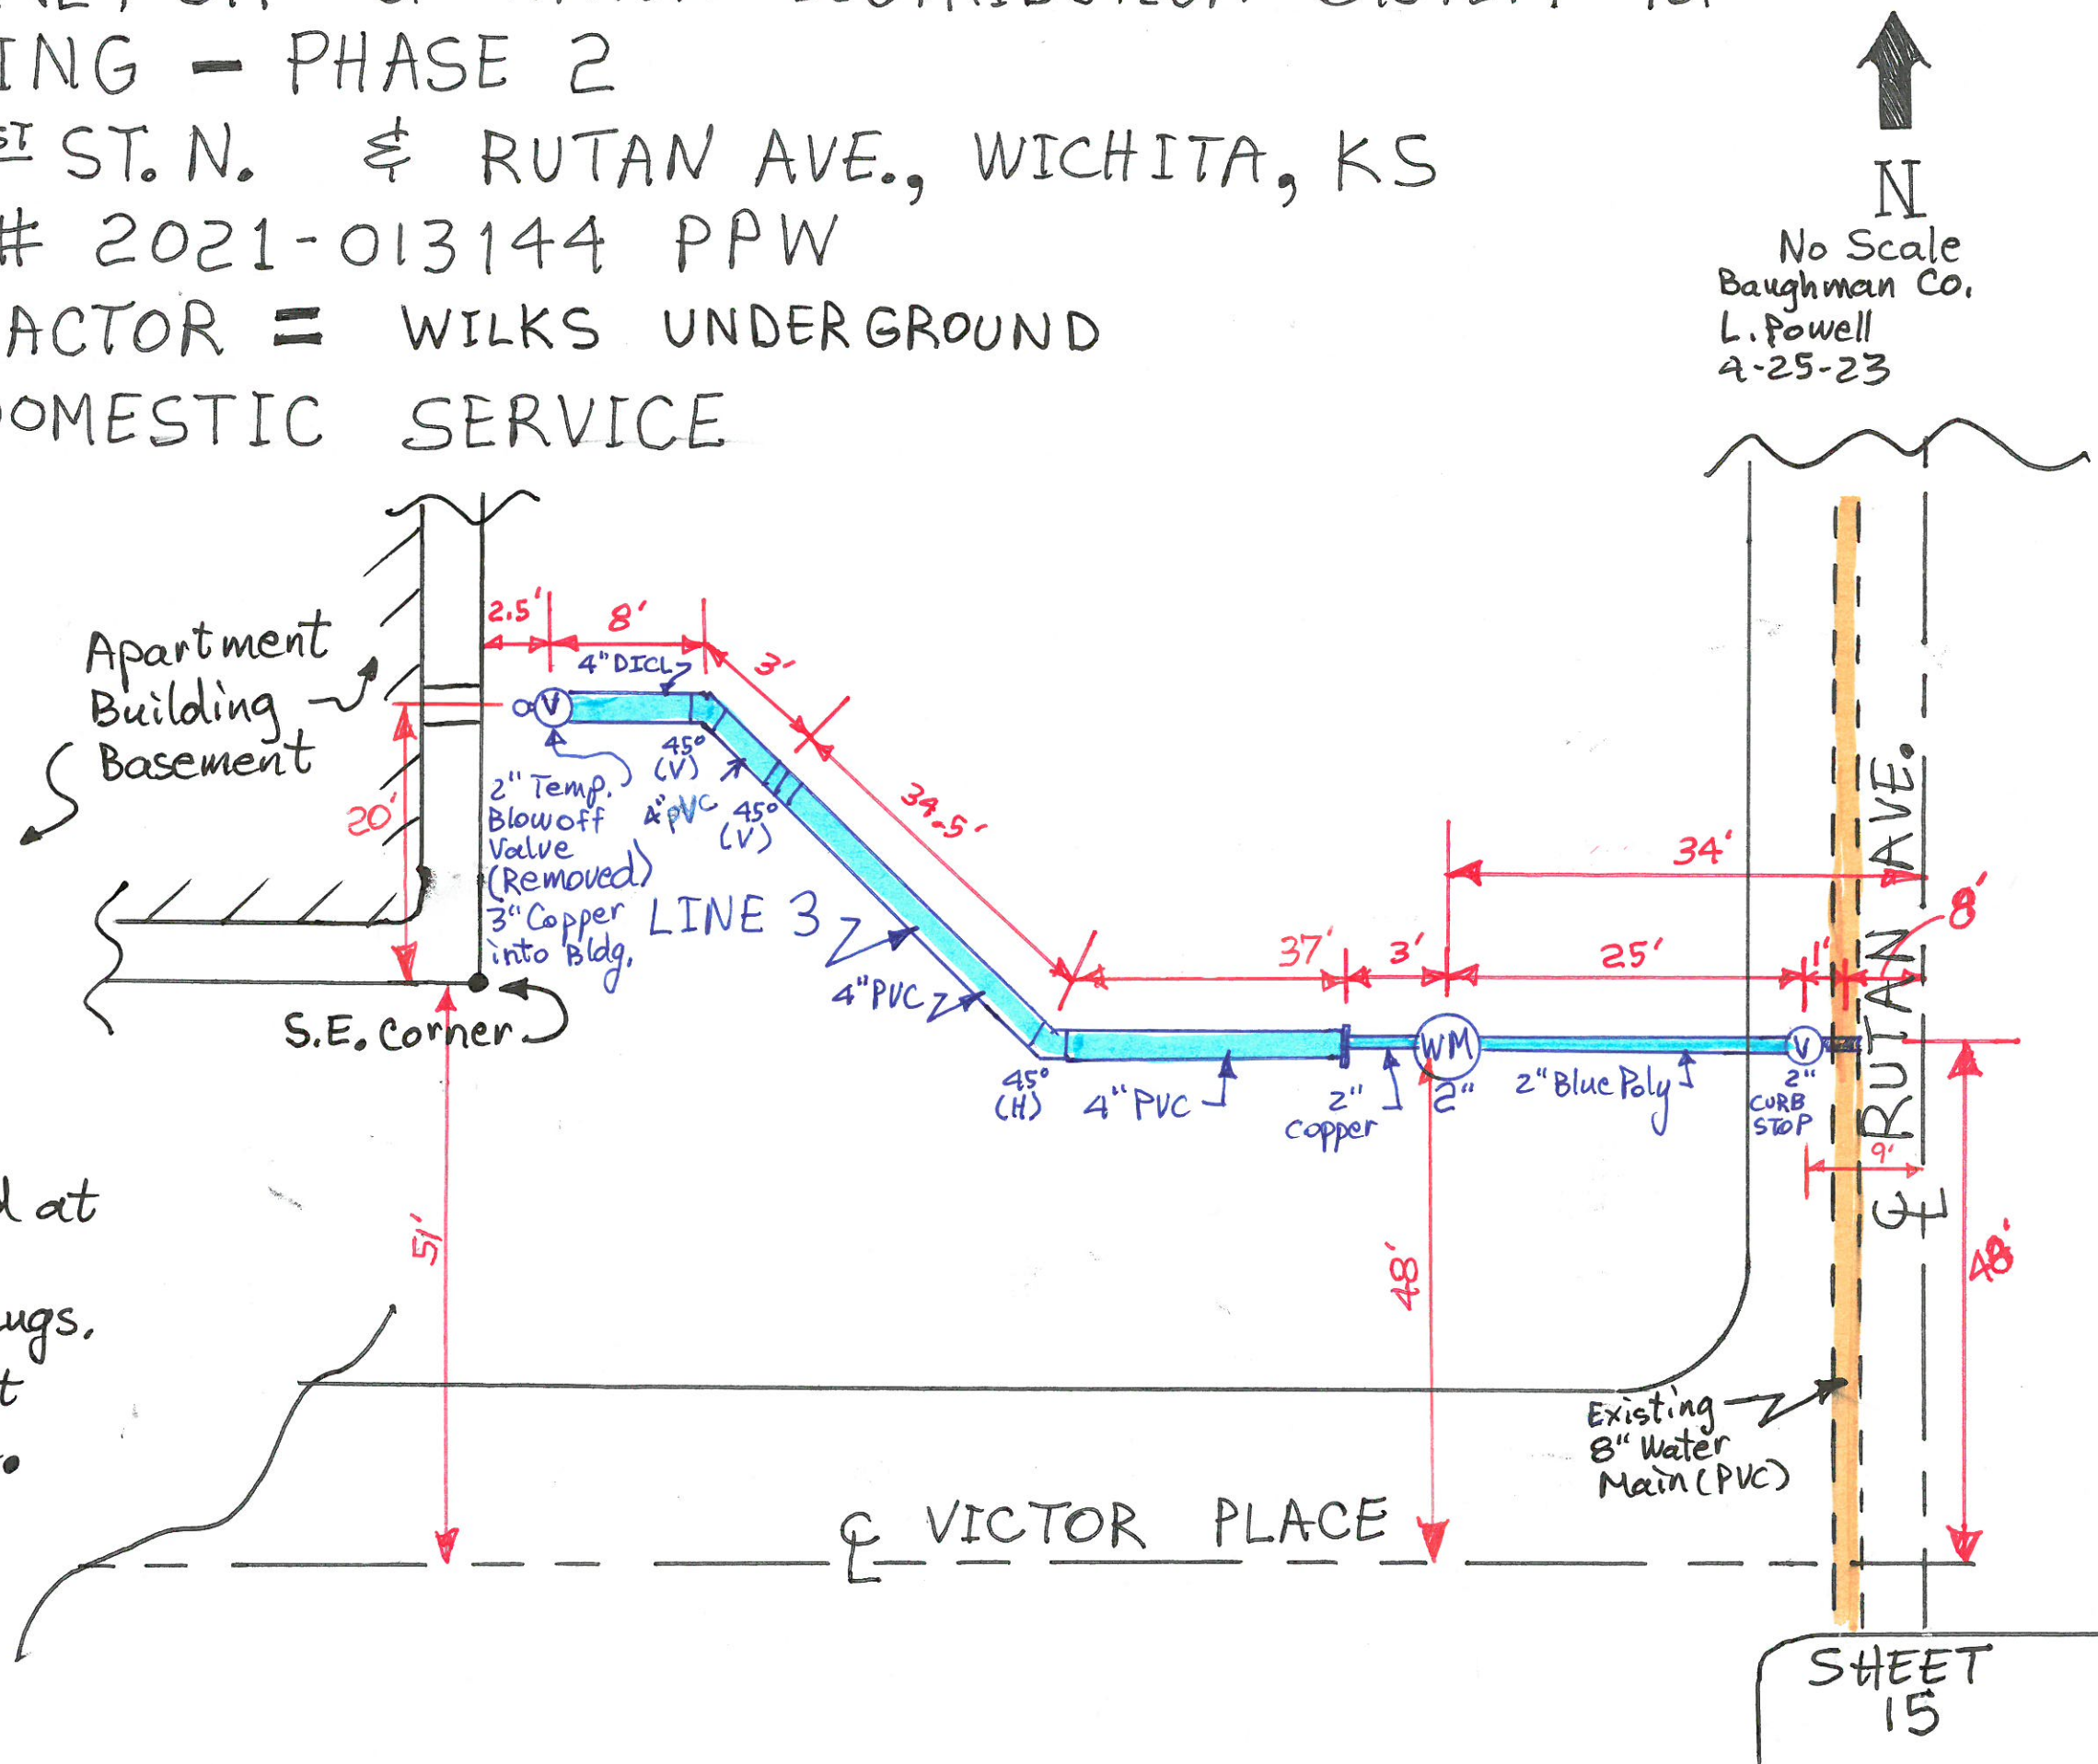 ING – PHASE 2
ST ST. N. & RUTAN AVE., WICHITA, KS
# 2021-013144 PPW
ACTOR = WILKS UNDERGROUND
DOMESTIC SERVICE
N
No Scale
Baughman Co.
L. Powell
4-25-23
Apartment
Building
Basement
20'
2.5'
8'
4" DICL
3'
V
45°
(V)
4" PVC
45°
(V)
2" Temp.
Blowoff
Valve
(Removed)
3" Copper
into Bldg.
34.5'
LINE 3
4" PVC
S.E. Corner
34'
8'
37'
3'
25'
1'
WM
V
45°
(H)
4" PVC
2"
Copper
2"
2" Blue Poly
2"
CURB
STOP
9'
℄ RUTAN AVE.
51'
48'
48'
d at
ugs.
t
Existing
8" Water
Main (PVC)
℄ VICTOR PLACE
SHEET
15